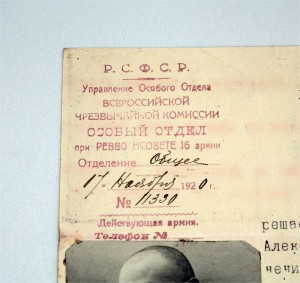 Р. С. Ф. С. Р.
Управление Особого Отдела
ВСЕРОССИЙСКОЙ
ЧРЕЗВЫЧАЙНОЙ КОМИССИИ
ОСОБЫЙ ОТДЕЛ
при РЕВВОЕНСОВЕТЕ 16 армии
Отделение Общее
17 Ноября 1920 г.
№ 11330
Действующая армия.
Телефон №
решае
Алек
чечи